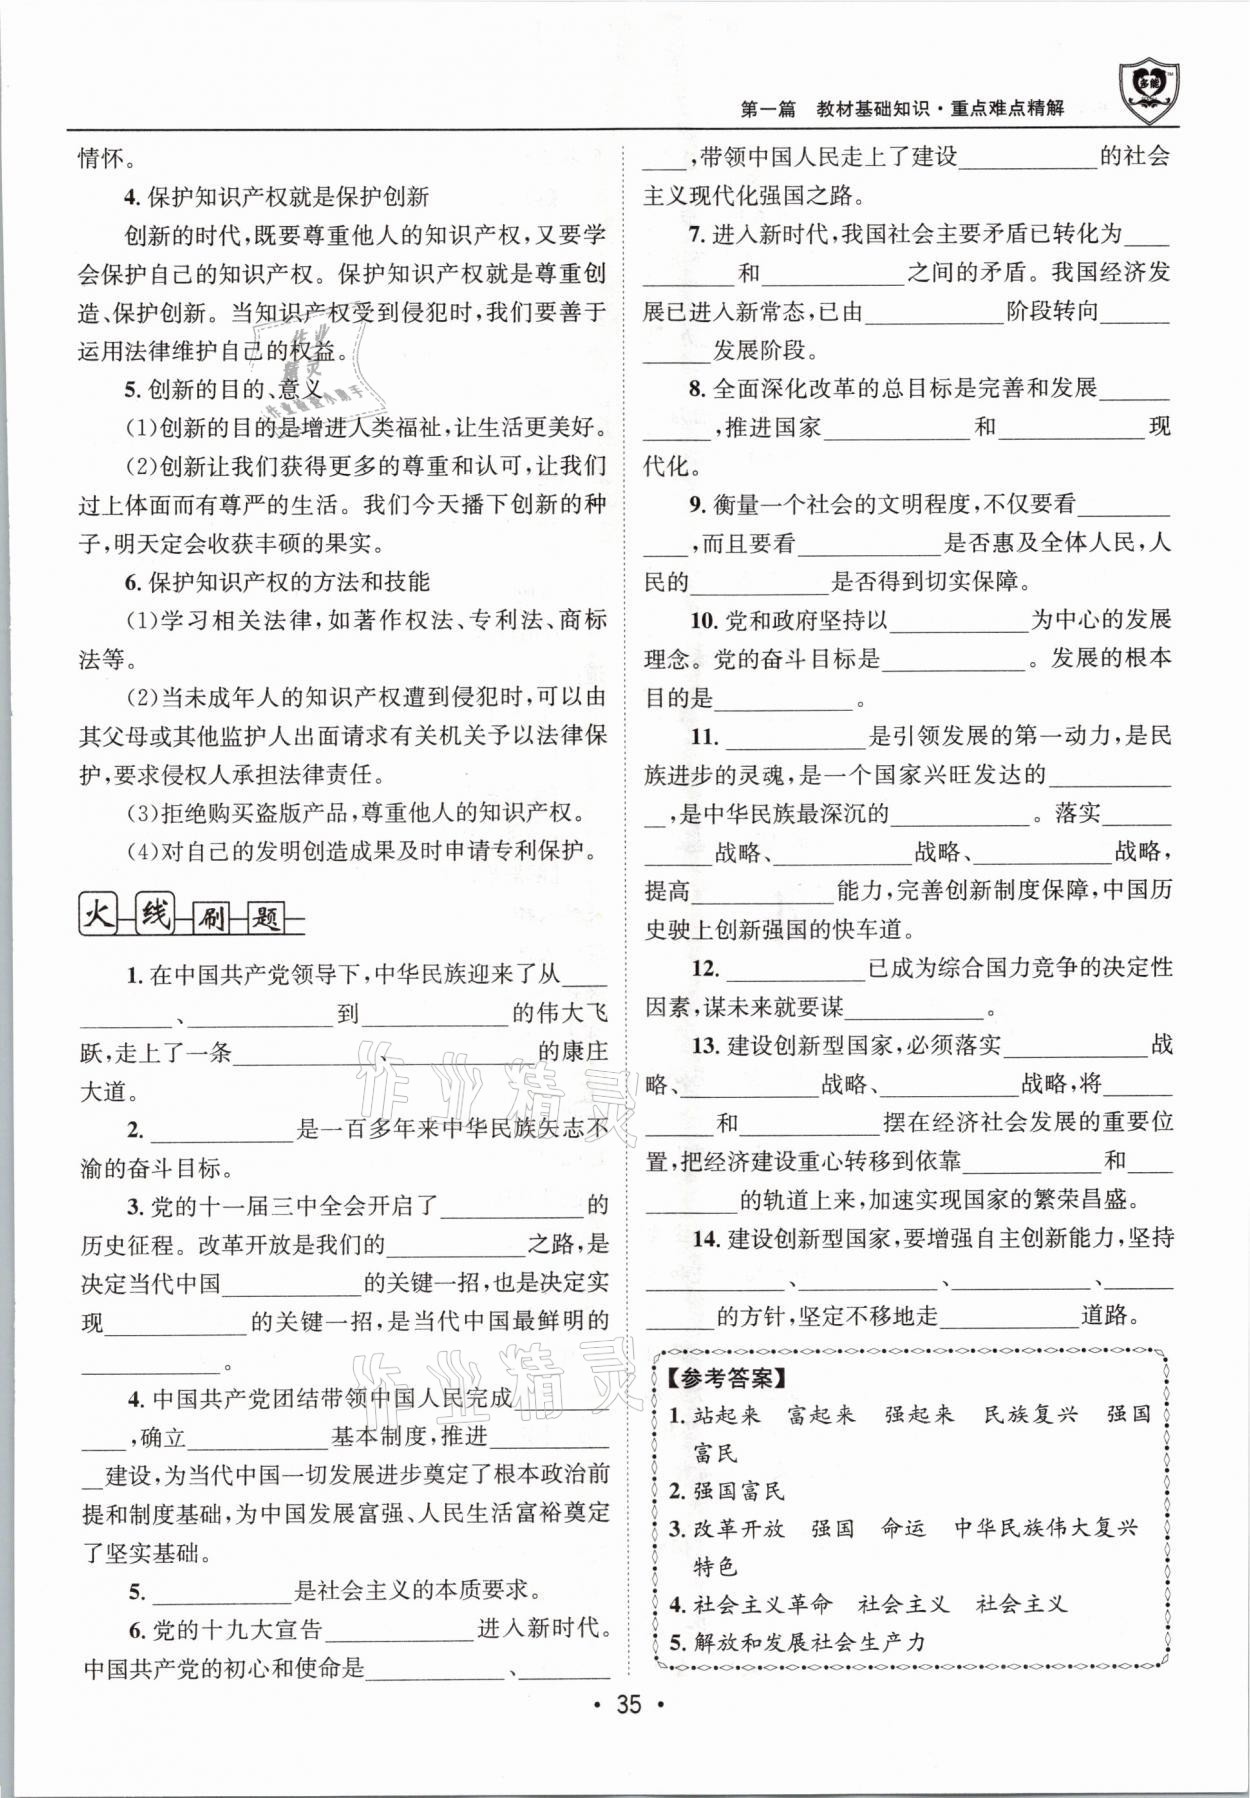 第一篇 教材基础知识·重点难点精解
多能
情怀。
4. 保护知识产权就是保护创新
创新的时代,既要尊重他人的知识产权,又要学
会保护自己的知识产权。保护知识产权就是尊重创
造、保护创新。当知识产权受到侵犯时,我们要善于
运用法律维护自己的权益。
5. 创新的目的、意义
(1)创新的目的是增进人类福祉,让生活更美好。
(2)创新让我们获得更多的尊重和认可,让我们
过上体面而有尊严的生活。我们今天播下创新的种
子,明天定会收获丰硕的果实。
6. 保护知识产权的方法和技能
(1)学习相关法律,如著作权法、专利法、商标
法等。
(2)当未成年人的知识产权遭到侵犯时,可以由
其父母或其他监护人出面请求有关机关予以法律保
护,要求侵权人承担法律责任。
(3)拒绝购买盗版产品,尊重他人的知识产权。
(4)对自己的发明创造成果及时申请专利保护。
火线刷题
1. 在中国共产党领导下,中华民族迎来了从____
________、____________到____________的伟大飞
跃,走上了一条____________、____________的康庄
大道。
2. ____________是一百多年来中华民族矢志不
渝的奋斗目标。
3. 党的十一届三中全会开启了____________的
历史征程。改革开放是我们的____________之路,是
决定当代中国____________的关键一招,也是决定实
现____________的关键一招,是当代中国最鲜明的
____________。
4. 中国共产党团结带领中国人民完成________
____,确立____________基本制度,推进__________
__建设,为当代中国一切发展进步奠定了根本政治前
提和制度基础,为中国发展富强、人民生活富裕奠定
了坚实基础。
5. ____________是社会主义的本质要求。
6. 党的十九大宣告____________进入新时代。
中国共产党的初心和使命是____________、________
____,带领中国人民走上了建设____________的社会
主义现代化强国之路。
7. 进入新时代,我国社会主要矛盾已转化为____
________和____________之间的矛盾。我国经济发
展已进入新常态,已由____________阶段转向______
______发展阶段。
8. 全面深化改革的总目标是完善和发展______
______,推进国家____________和____________现
代化。
9. 衡量一个社会的文明程度,不仅要看________
____,而且要看____________是否惠及全体人民,人
民的____________是否得到切实保障。
10. 党和政府坚持以____________为中心的发展
理念。党的奋斗目标是____________。发展的根本
目的是____________。
11. ____________是引领发展的第一动力,是民
族进步的灵魂,是一个国家兴旺发达的__________
__,是中华民族最深沉的____________。落实______
______战略、____________战略、____________战略,
提高____________能力,完善创新制度保障,中国历
史驶上创新强国的快车道。
12. ____________已成为综合国力竞争的决定性
因素,谋未来就要谋____________。
13. 建设创新型国家,必须落实____________战
略、____________战略、____________战略,将______
______和____________摆在经济社会发展的重要位
置,把经济建设重心转移到依靠____________和____
________的轨道上来,加速实现国家的繁荣昌盛。
14. 建设创新型国家,要增强自主创新能力,坚持
____________、____________、____________、______
______的方针,坚定不移地走____________道路。
【参考答案】
1. 站起来 富起来 强起来 民族复兴 强国
富民
2. 强国富民
3. 改革开放 强国 命运 中华民族伟大复兴
特色
4. 社会主义革命 社会主义 社会主义
5. 解放和发展社会生产力
· 35 ·
作业精灵
作业精灵
作业
精灵